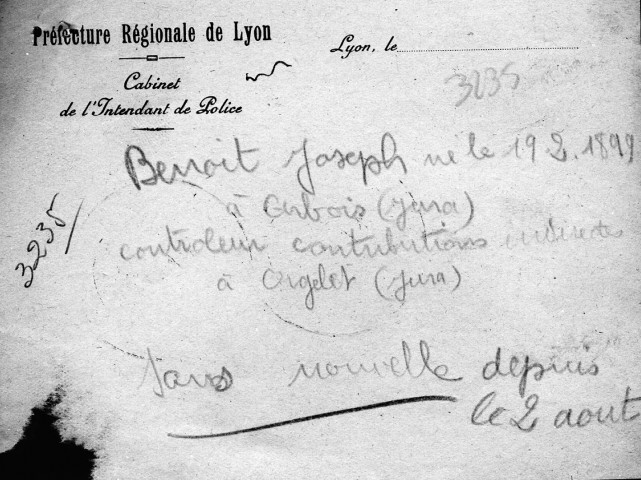 Préfecture Régionale de Lyon
Lyon, le
Cabinet
de l'Intendant de Police
3235
Benoit Joseph né le 19 2. 1899
à Arbois (Jura)
3235
controleur contributions indirectes
à Orgelet (Jura)
Sans nouvelle depuis
le 2 aout